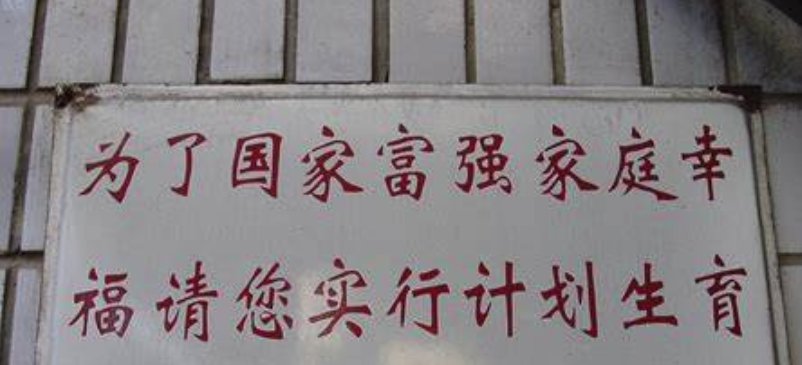 为了国家富强家庭幸
福请您实行计划生育